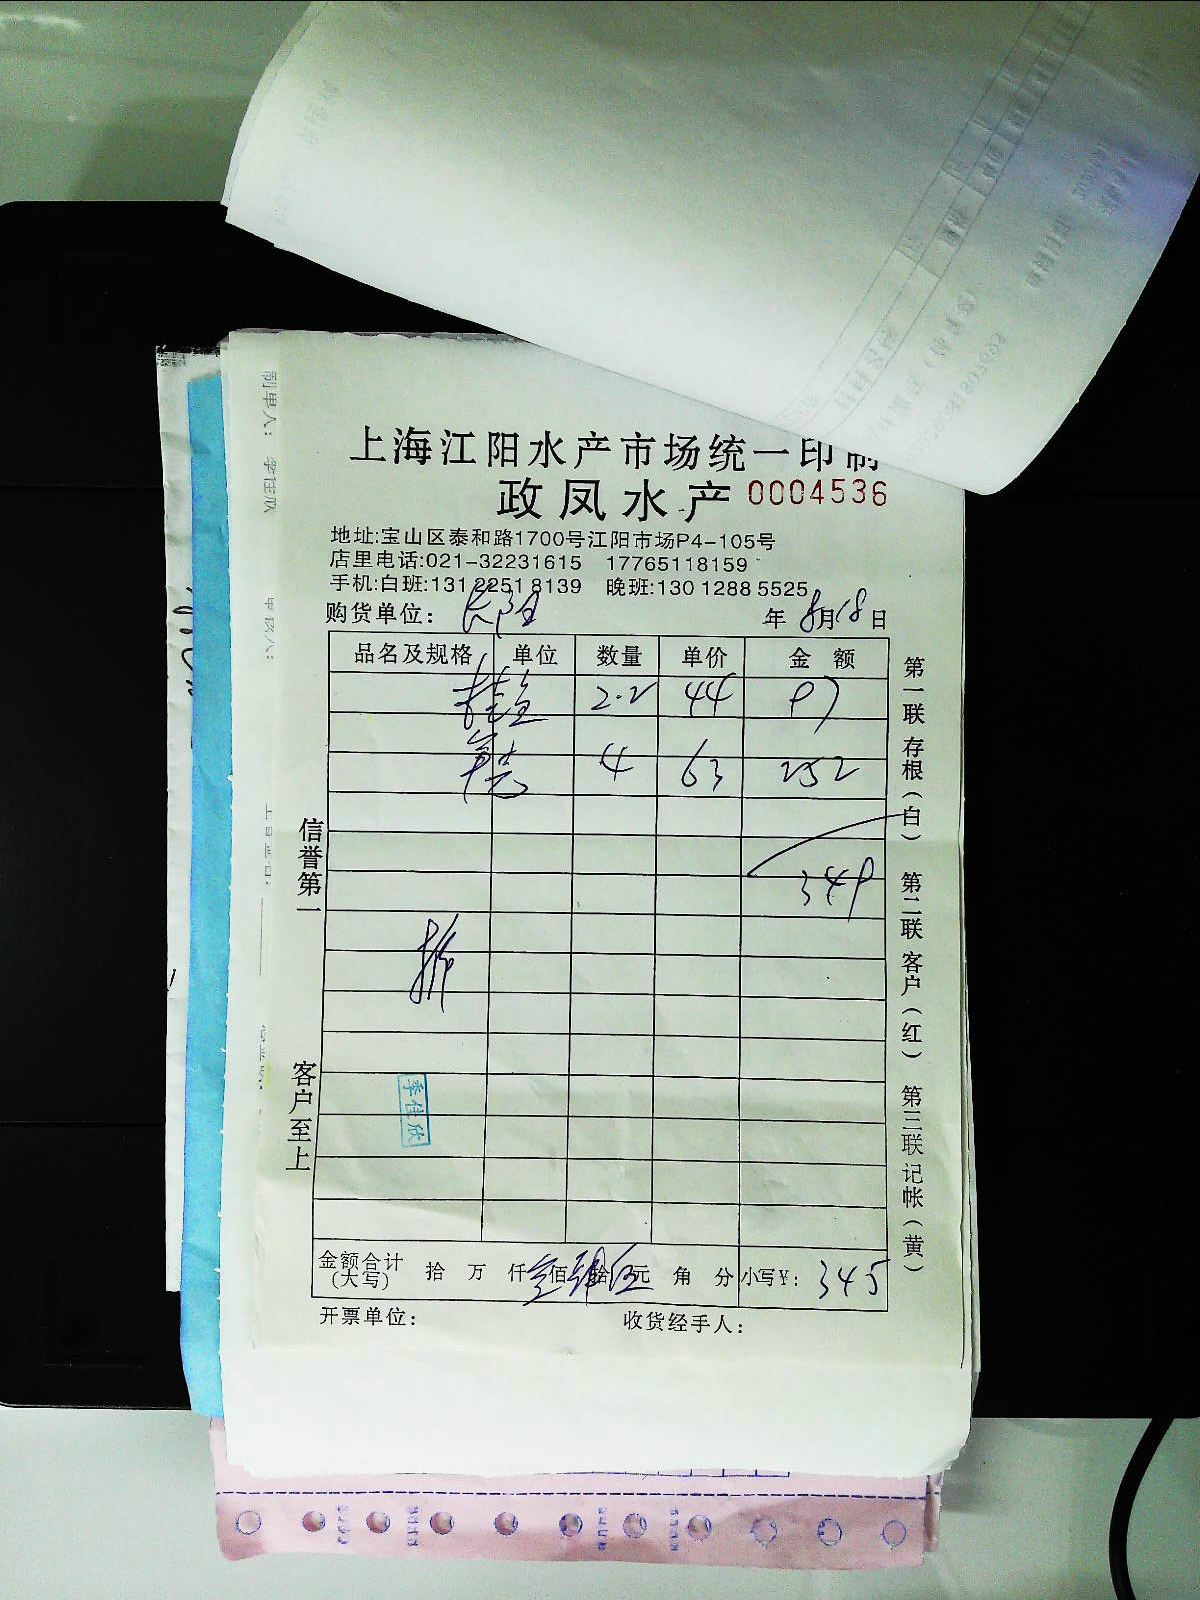 上海江阳水产市场统一印制
政凤水产 0004536
地址:宝山区泰和路1700号江阳市场P4-105号
店里电话:021-32231615 17765118159
手机:白班:13122518139 晚班:13012885525
购货单位: 长阳 年 8月18日
品名及规格 单位 数量 单价 金 额
桂鱼 2.2 44 97
4 63 252
349
信誉第一
客户至上
季佳欣
第一联 存根（白） 第二联 客户（红） 第三联 记帐（黄）
金额合计
（大写） 拾 万 仟 叁佰 肆拾 伍元 角 分 小写¥: 345
开票单位: 收货经手人:
制单人: 季佳欣
审核人: